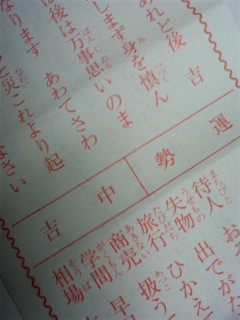 吉
あれど後
します身を慎ん
後は万事思いのま
なります あわてさわ
と災これより起
さい
運勢 中吉
待人
失物 出でがた
旅行 ひかえ
商売 扱
学問 早
相場